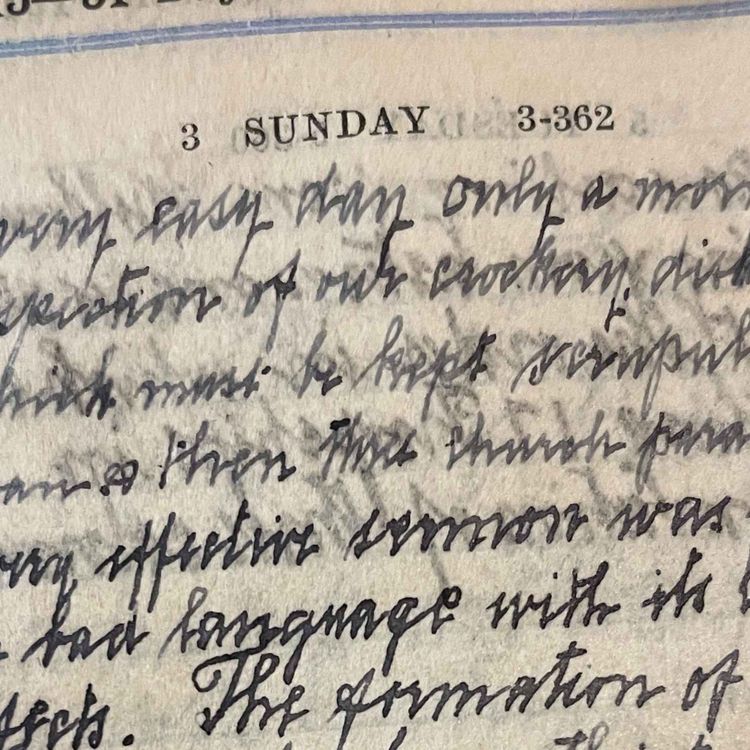 3 SUNDAY 3-362
very easy day only a mor
spection of our crockery, dish
hich must be kept scrupul
an & then the church para
ery effective sermon was
bad language with its
The formation of